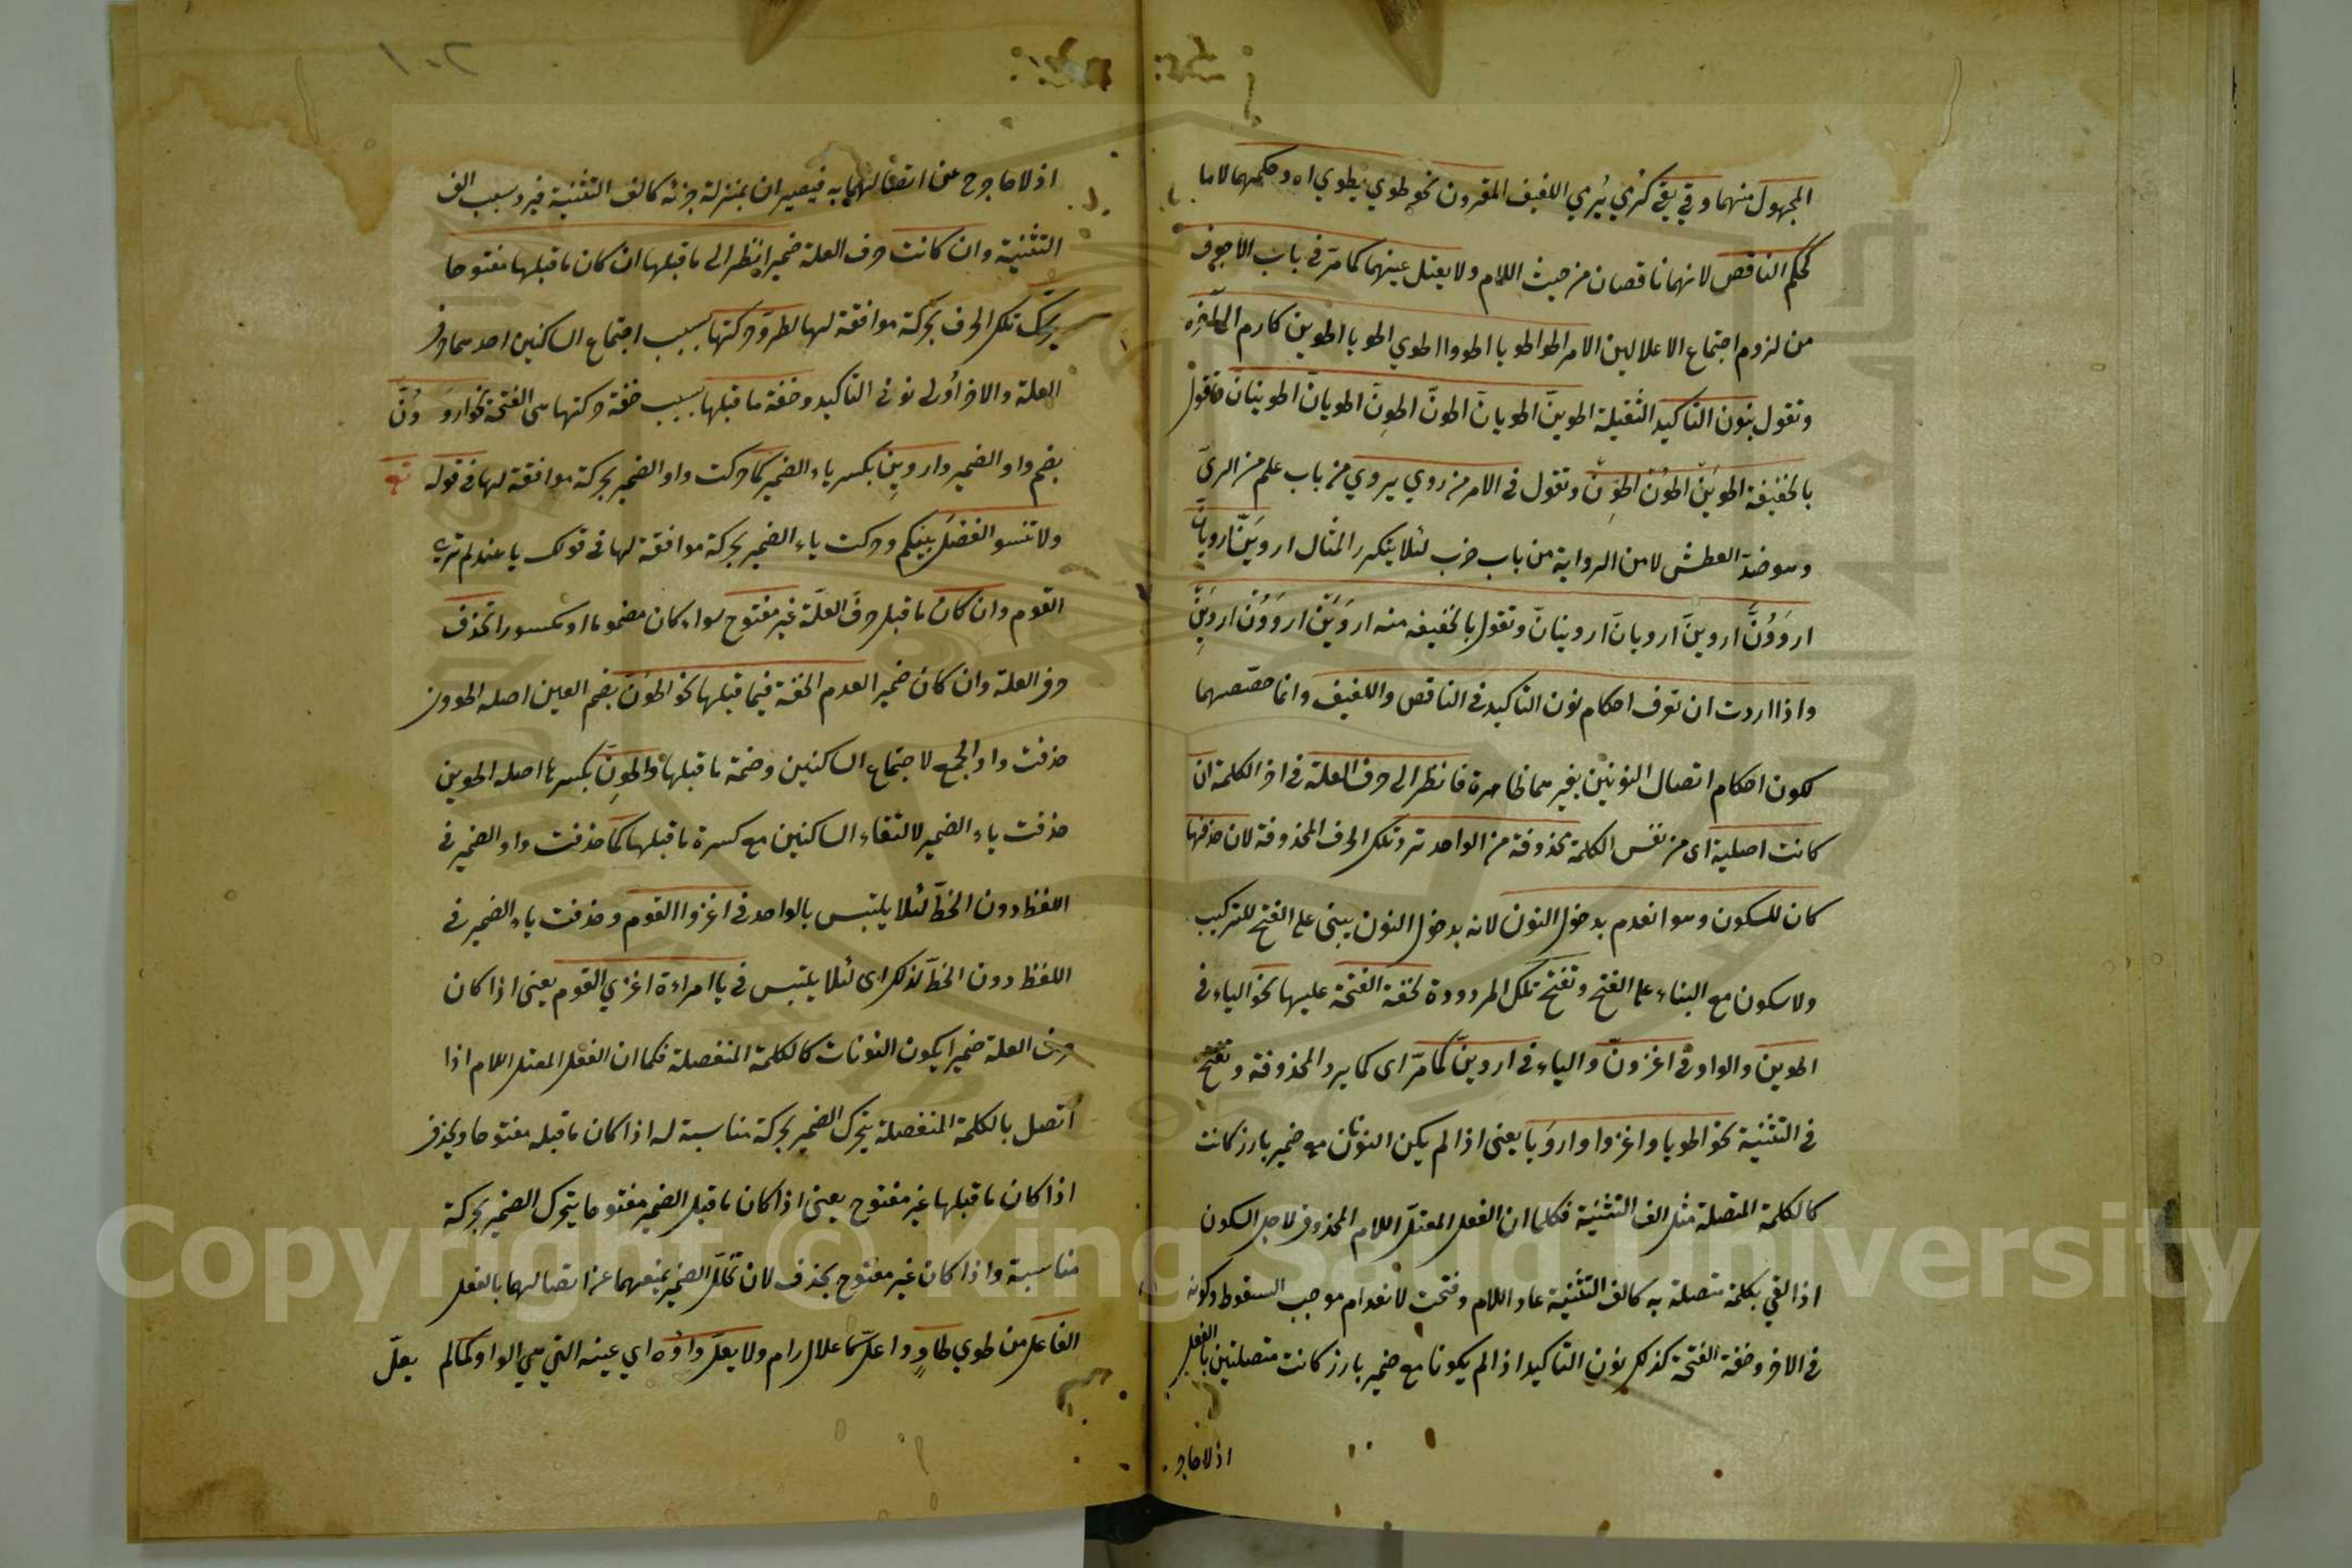 المجهول منهما وقي يقي كرمي يرمي اللفيف المقرون نحو طوي يطوي اه وحكمهما لاما
كحكم الناقص لانهما ناقصان من حيث اللام ولا يعتل عينهما كما مر في باب الاجوف
من لزوم اجتماع الاعلالين الامر اطو اطويا اطووا اطوي اطويا اطوين كارم الى آخره
وتقول بنون التاكيد الثقيلة اطوينّ اطويانّ اطونّ اطوِنّ اطويانّ اطوينانّ وتقول
بالخفيفة اطويَنْ اطوُنْ اطوِنْ وتقول في الامر من روي يروي من باب علم من الريّ
وهو ضد العطش لا من الرواية من باب ضرب لئلا يتكرر المثال ارويَنّ ارويانّ
اروَوُنّ اروينّ ارويانّ اروينانّ وتقول بالخفيفه منه اروَيَنْ اروَوُنْ اروَيِنْ
واذا اردت ان تعرف احكام نون التاكيد في الناقص واللفيف وانما خصّصهما
لكون احكام اتصال النونين بغيرهما ظاهرة فانظر الى حرف العلة في اخر الكلمة ان
كانت اصلية اى من نفس الكلمة محذوفة من الواحد ترد تلك الحرف المحذوفة لان حذفها
كان للسكون وهو انعدم بدخول النون لانه بدخول النون يبنى على الفتح للتركيب
ولا سكون مع البناء على الفتح وتفتح تلك المردودة لخفة الفتحة عليها نحو الياء في
اطوين والواو في اغزونّ والياء في اروينّ كما مرّ اى كما يرد المحذوفة وتفتح
في التثنية نحو اطويا واغزوا واروَيا يعنى اذا لم يكن النونان مع ضمير بارز كانت
كالكلمة المتصلة مثل الف التثنية فكما ان الفعل المعتلّ اللام المحذوف لاجل السكون
اذا لقي بكلمة متصلة به كالف التثنية عاد اللام وفتحت لانعدام موجب السقوط وكونه
في الاخر وخفة الفتحة كذلك نون التاكيد اذا لم يكونا مع ضمير بارز كانت متصلتين بالفعل
اذ لا حاجز
اذ لا حاجز عن اتصالهما به فيصيران بمنزلة جزئه كالف التثنية فيرد بسبب الف
التثنية وان كانت حرف العلة ضميرا ينظر الى ما قبلها ان كان ما قبلها مفتوحا
يحرّك تلك الحرف بحركة موافقة لها لطرو حركتها بسبب اجتماع الساكنين احدهما حرف
العلة والاخر أولى نوني التاكيد وخفة ما قبلها بسبب خفة حركتها هي الفتحة نحو اروَوُنّ
بضم واو الضمير واروينّ بكسر ياء الضمير كما حركت واو الضمير بحركة موافقة لها في قوله تع
ولا تنسو الفضل بينكم وحركت ياء الضمير بحركة موافقة لها في قولك يا هند لم تري
القوم وان كان ما قبل حرف العلّة غير مفتوح سواء كان مضموما او مكسورا تحذف
حرف العلة وان كان ضمير العدم الخفة فيما قبلها نحو اطوُنّ بضم العين اصله اطوون
حذفت واو الجمع لاجتماع الساكنين وضمة ما قبلها واطوِنّ بكسرها اصله اطوين
حذفت ياء الضمير لالتقاء الساكنين مع كسرة ما قبلها كما حذفت واو الضمير في
اللفظ دون الخطّ لئلا يلتبس بالواحد في اغزوا القوم وحذفت ياء الضمير في
اللفظ دون الخطّ لذلك اى لئلا يلتبس في يا امراءة اغزي القوم يعنى اذا كان
حرف العلة ضميرا يكون النونات كالكلمة المنفصلة فكما ان الفعل المعتل اللام اذا
اتصل بالكلمة المنفصلة يتحرك الضمير بحركة مناسبة له اذا كان ما قبله مفتوحا ويحذف
اذا كان ما قبلها غير مفتوح يعنى اذا كان ما قبل الضمير مفتوحا يتحرك الضمير بحركة
مناسبة واذا كان غير مفتوح يحذف لان تخلّل الضمير يمنعهما عن اتصالهما بالفعل
الفاعل من طوي طاوٍ واعلّ كاعلال رام ولا يعلّ واوُه اي عينه التي هي الواو كما لم يعلّ
Copyright © King Saud University